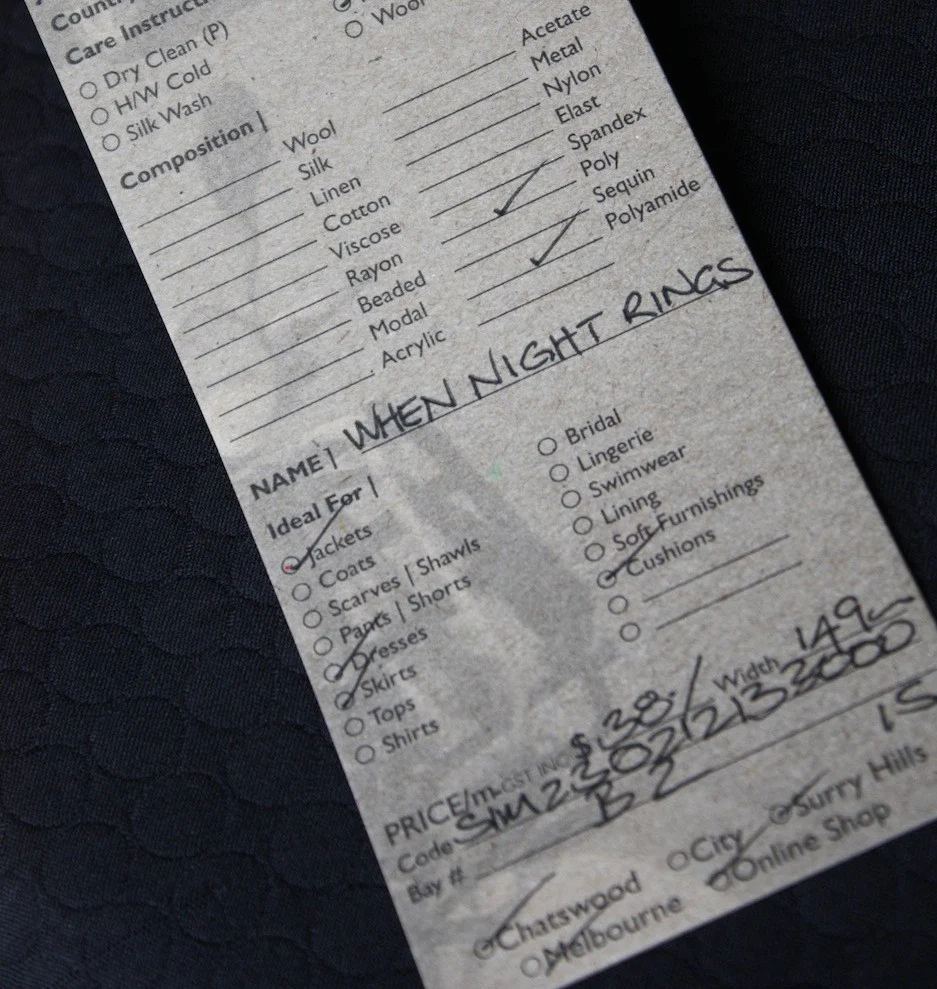 Country
Care Instructi
Dry Clean (P)
H/W Cold
Silk Wash
Wool
Composition |
Wool
Silk
Linen
Cotton
Viscose
Rayon
Beaded
Modal
Acrylic
Acetate
Metal
Nylon
Elast
Spandex
Poly
Sequin
Polyamide
NAME | WHEN NIGHT RINGS
Ideal For |
Jackets
Coats
Scarves | Shawls
Pants | Shorts
Dresses
Skirts
Tops
Shirts
Bridal
Lingerie
Swimwear
Lining
Soft Furnishings
Cushions
PRICE/m GST INC $38/ Width 149
Code
Bay # B2 15
Chatswood City Surry Hills
Melbourne Online Shop